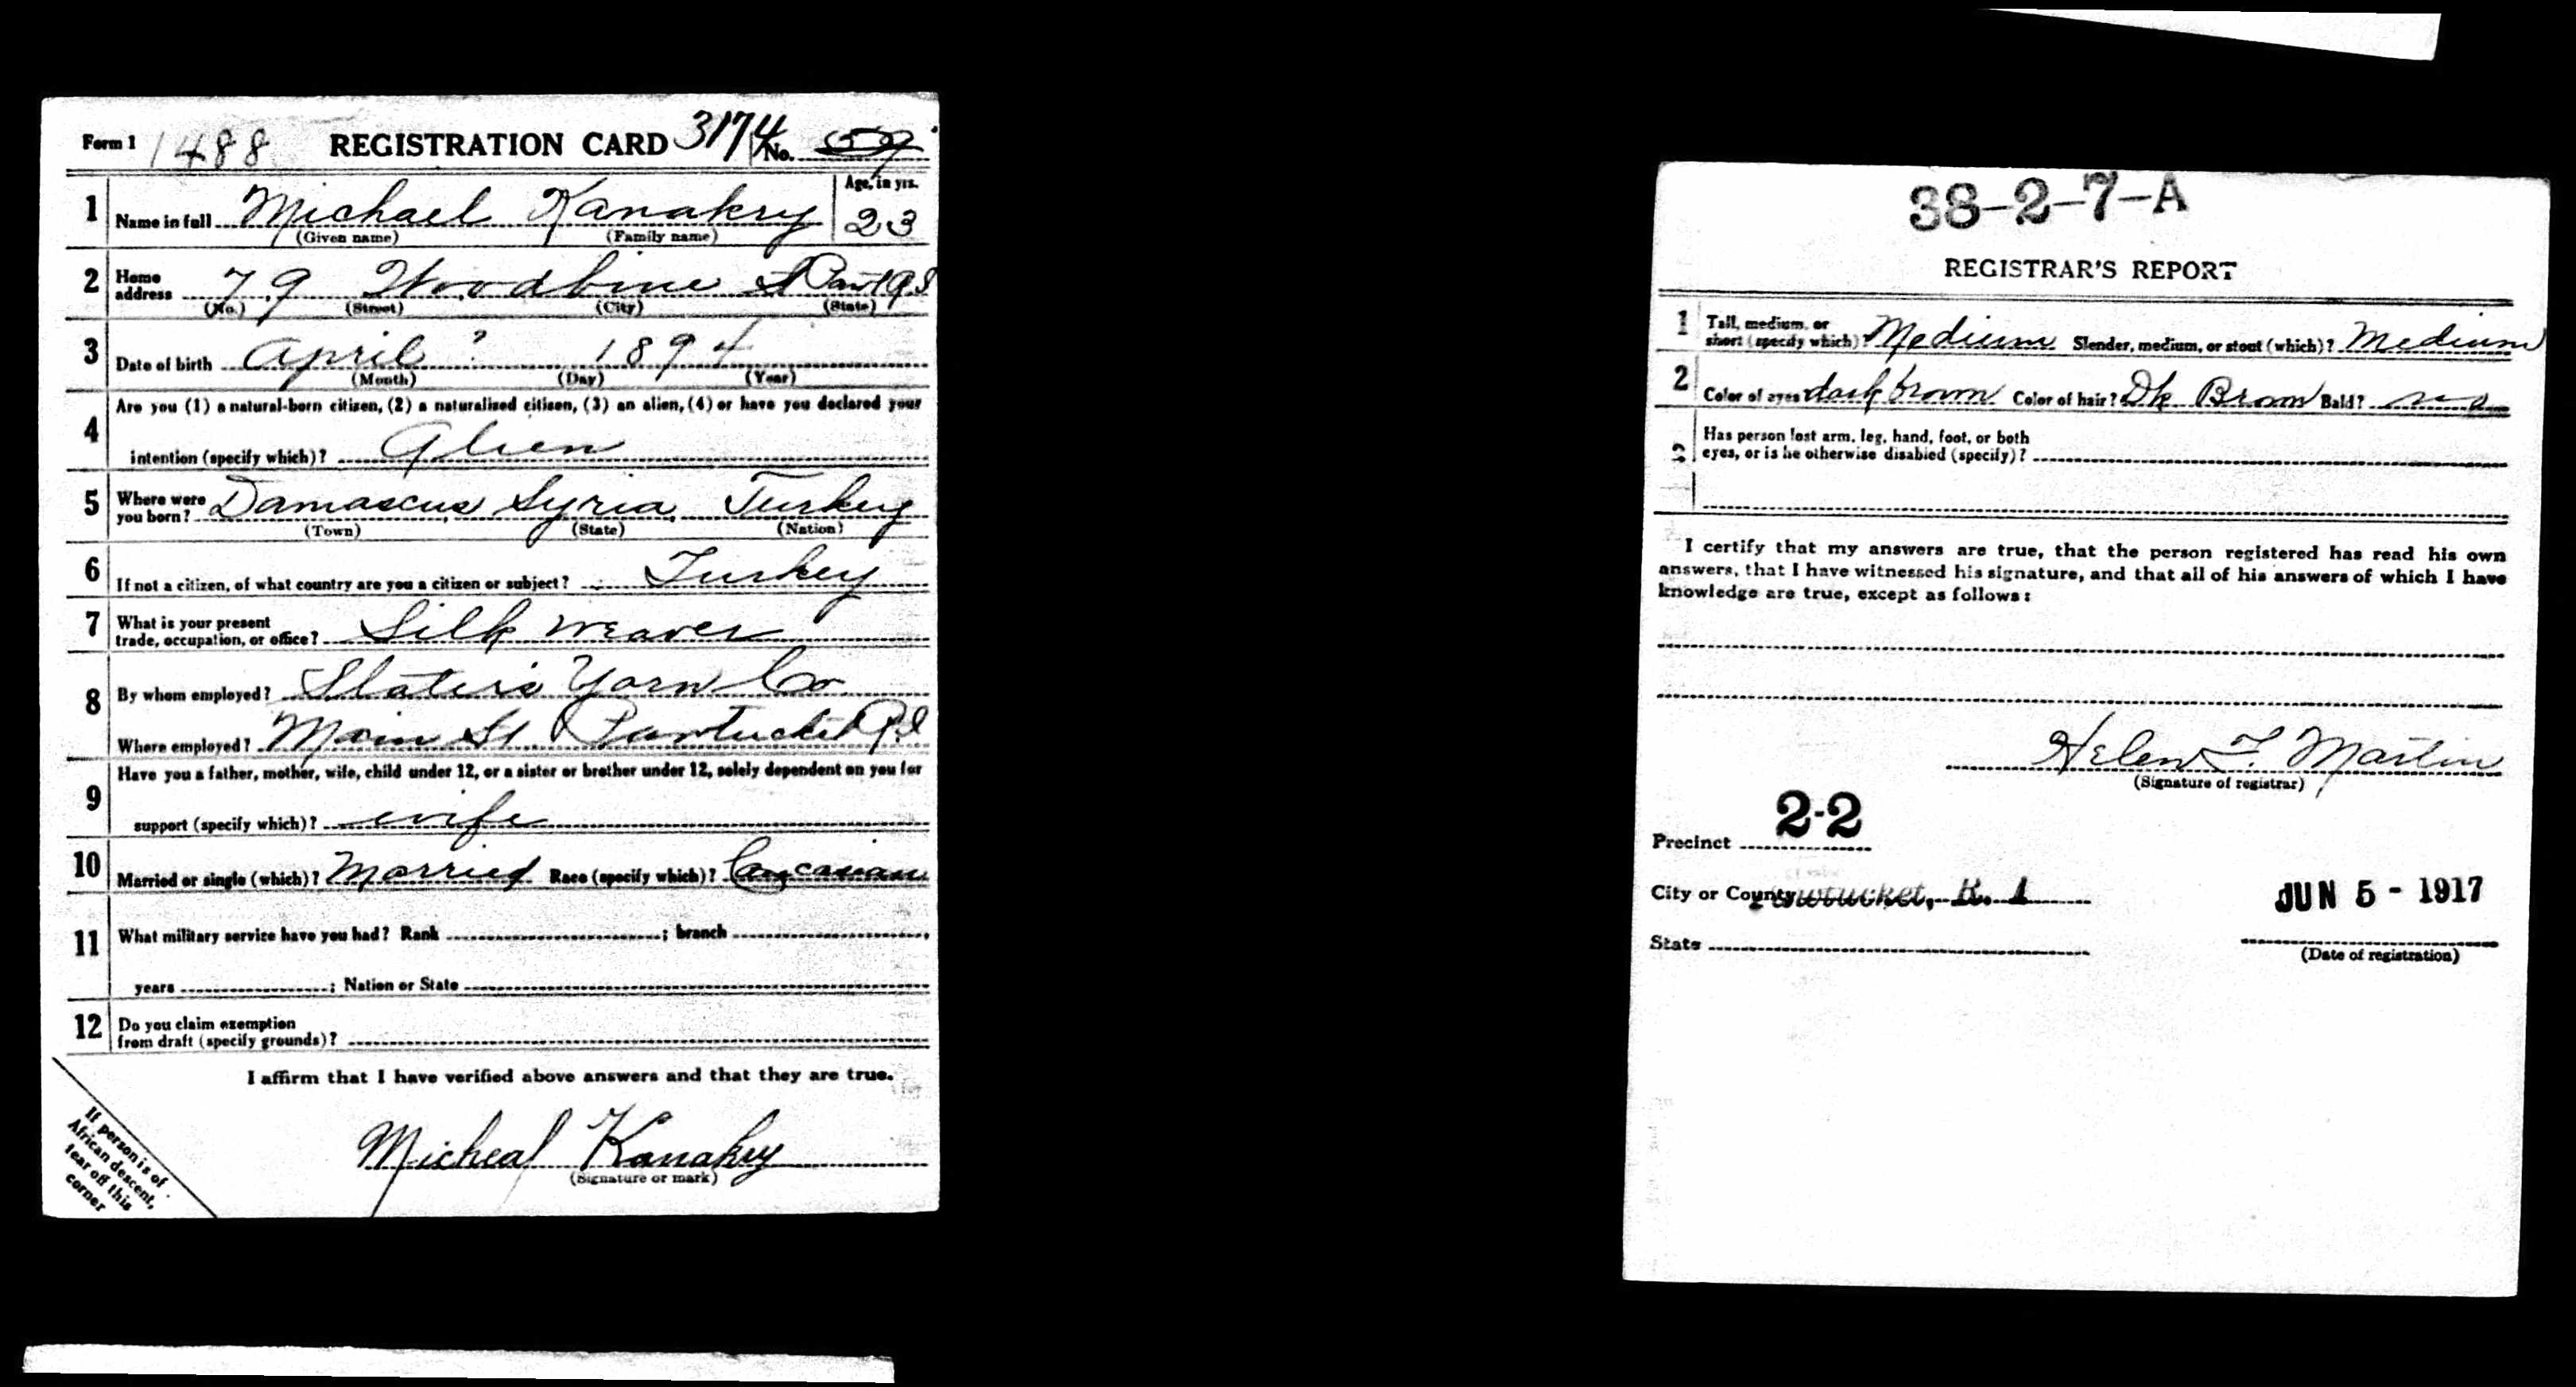 Form 1 1488 REGISTRATION CARD 3174 No. 59
1 Name in full Michael Kanakry Age, in yrs. 23
(Given name) (Family name)
2 Home address 79 Woodbine St Pawt R I
(No.) (Street) (City) (State)
3 Date of birth April ? 1894
(Month) (Day) (Year)
4 Are you (1) a natural-born citizen, (2) a naturalized citizen, (3) an alien, (4) or have you declared your
intention (specify which)? Alien
5 Where were you born? Damascus Syria, Turkey
(Town) (State) (Nation)
6 If not a citizen, of what country are you a citizen or subject? Turkey
7 What is your present trade, occupation, or office? Silk weaver
8 By whom employed? Slater's Yarn Co
Where employed? Main St. Pawtucket R.I
9 Have you a father, mother, wife, child under 12, or a sister or brother under 12, solely dependent on you for
support (specify which)? wife
10 Married or single (which)? Married Race (specify which)? Caucasian
11 What military service have you had? Rank ; branch
years ; Nation or State
12 Do you claim exemption from draft (specify grounds)?
I affirm that I have verified above answers and that they are true.
Micheal Kanakry
(Signature or mark)
If person is of
African descent,
tear off this
corner
38-2-7-A
REGISTRAR'S REPORT
1 Tall, medium, or short (specify which)? Medium Slender, medium, or stout (which)? Medium
2 Color of eyes dark brown Color of hair? Dk Brown Bald? no
3 Has person lost arm, leg, hand, foot, or both
eyes, or is he otherwise disabled (specify)?
I certify that my answers are true, that the person registered has read his own
answers, that I have witnessed his signature, and that all of his answers of which I have
knowledge are true, except as follows:
Helen F. Martin
(Signature of registrar)
Precinct 2-2
City or County Pawtucket, R. I
JUN 5 - 1917
State
(Date of registration)